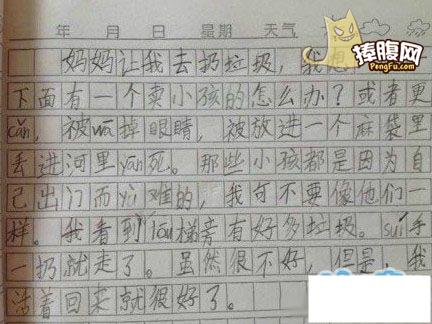 年 月 日 星期 天气
捧腹网
PengFu.com
妈妈让我去扔垃圾，我想
下面有一个卖小孩的怎么办？或者更
cǎn，被wā掉眼睛，被放进一个麻袋里
丢进河里yān死。那些小孩都是因为自
己出门而yù难的，我可不要像他们一
样。我看到lóu梯旁有好多垃圾。suí手
一扔就走了。虽然很不好，但是，我
活着回来就很好了。